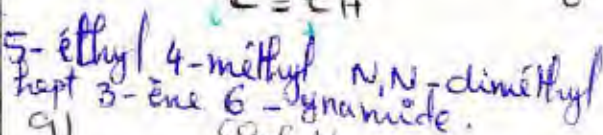 C ≡ CH
5-éthyl 4-méthyl N,N-diméthyl
hept 3-ène 6-ynamide.